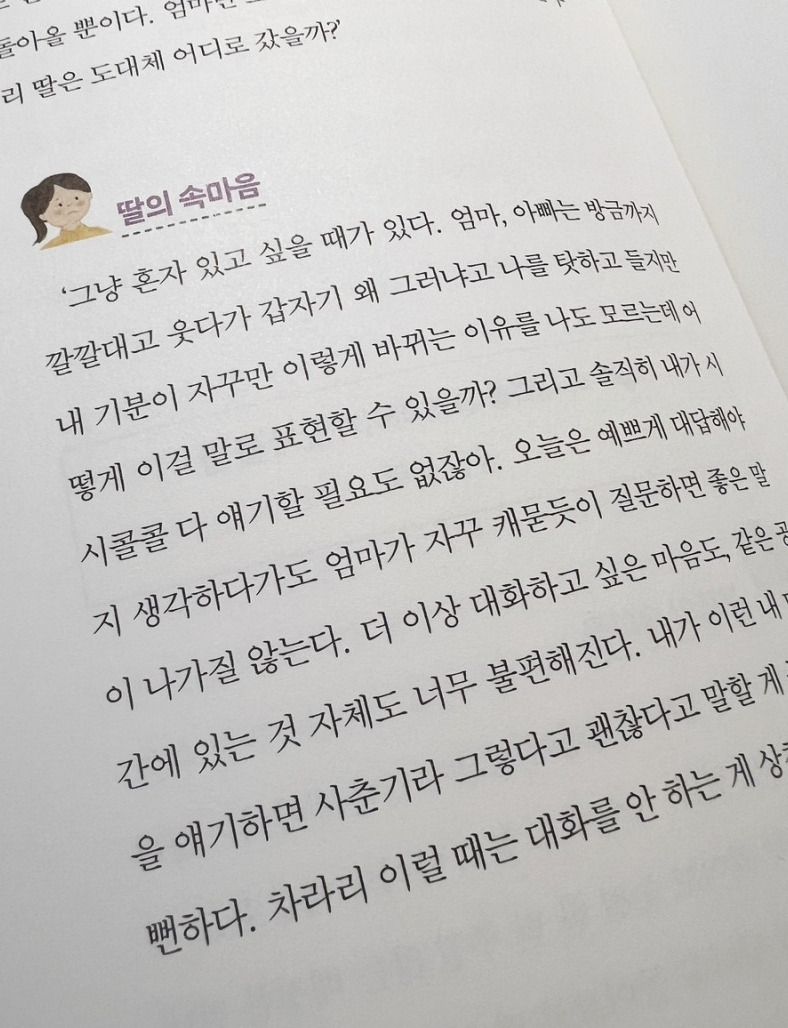 돌아올 뿐이다. 엄마는
리 딸은 도대체 어디로 갔을까?'
딸의 속마음
'그냥 혼자 있고 싶을 때가 있다. 엄마, 아빠는 방금까지
깔깔대고 웃다가 갑자기 왜 그러냐고 나를 탓하고 들지만
내 기분이 자꾸만 이렇게 바뀌는 이유를 나도 모르는데 어
떻게 이걸 말로 표현할 수 있을까? 그리고 솔직히 내가 시
시콜콜 다 얘기할 필요도 없잖아. 오늘은 예쁘게 대답해야
지 생각하다가도 엄마가 자꾸 캐묻듯이 질문하면 좋은 말
이 나가질 않는다. 더 이상 대화하고 싶은 마음도, 같은 공
간에 있는 것 자체도 너무 불편해진다. 내가 이런 내
을 얘기하면 사춘기라 그렇다고 괜찮다고 말할 게
뻔하다. 차라리 이럴 때는 대화를 안 하는 게